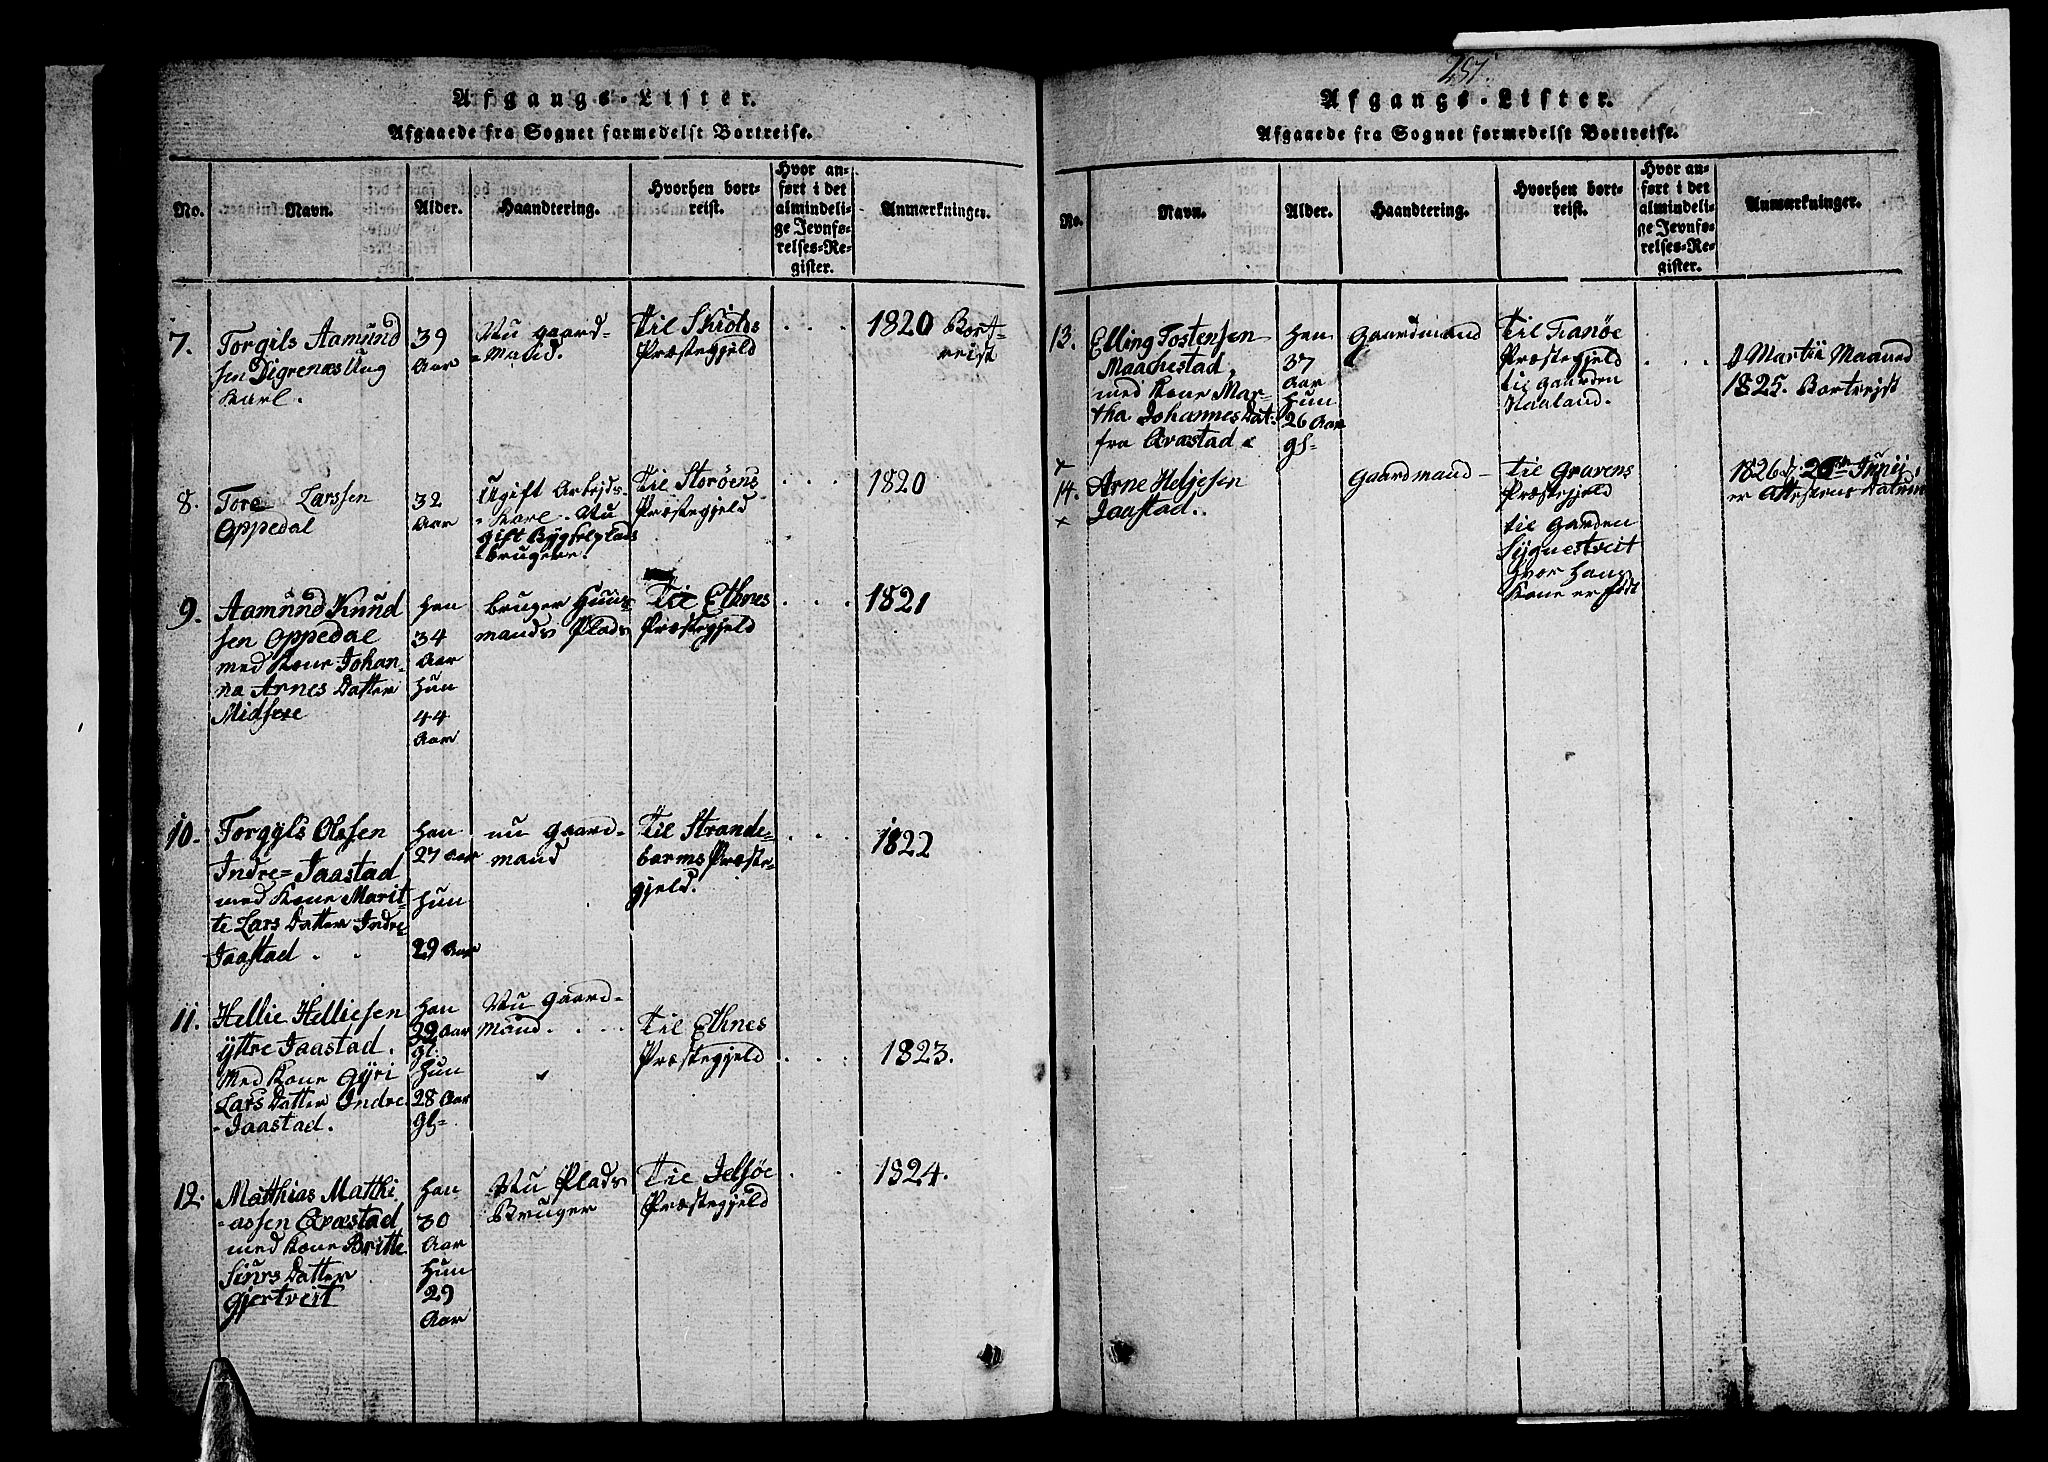 Afgangs-Lister.
Afgaaede fra Sognet formedelst Bortreise.
No.
Navn.
Alder.
Haandtering.
Hvorhen bort-
reist.
Hvor an-
ført i det
almindeli-
ge Jevnfø-
relses-Re-
gister.
Anmærkninger.
7.
Torgils Aamund
sen Digrenæs Ung
Karl.
39
Aar
Nu gaard-
-Mand.
Til Skiolds
Præstegjeld
1820 Bort-
reist
8.
Tore Larssen
Oppedal
32
Aar
Ugift Arbejds-
-Karl. Nu
gift Bygselplads
bruger.
Til Storöens
Præstegjeld
1820
9.
Aamund Knud
sen Oppedal
med Kone Johan-
na Arnes Datter
Midsere
Han
34
Aar
Hun
44
Aar
bruger Huus-
mands Plads
Til Ethnes
Præstegjeld
1821
10.
Torgyls Olssen
Indre= Jaastad
med Kone Marit-
te Lars Datter Indre
Jaastad
Han
27 Aar
Hun
29 Aar
nu gaard-
mand
Til Strande-
barms Præste-
gjeld.
1822
11.
Hellie Helliesen
Yttre Jaastad.
Med Kone Gyri
Lars Datter Indre
-Jaastad.
Han
29 Aar
gl:
Hun
28 Aar
gl-
Nu gaard-
Mand.
Til Ethnes
Præstegjeld
1823.
12.
Matthias Matthi
-assen Qvæstad
med Kone Britte
Siurs Datter
Gjertveit
Han
30
Aar
Hun
29
Aar
Nu Plads
Bruger
Til Jelsöe
Præstegjeld
1824.
257.
Afgangs-Lister.
Afgaaede fra Sognet formedelst Bortreise.
No.
Navn.
Alder.
Haandtering.
Hvorhen bort-
reist.
Hvor an-
ført i det
almindeli-
ge Jevnfø-
relses-Re-
gister.
Anmærkninger.
13.
Elling Tostensen
Maachestad,
med Kone Mar-
tha Johannes Dat:
fra Qvæstad
Han
37
Aar
Hun
26 Aar
gl-
Gaardmand
Til Fianöe
Præstegjeld
til gaarden
Haaland.
I Martii Maaned
1825. Bortrejst
14.
Arne Heljesen
Jaastad.
Gaardmand
Til Gravens
Præstegjeld
til Garden
Sygnestveit
hvor hans
Kone er født
1826 d: 26de Junij
er Attestens Datum